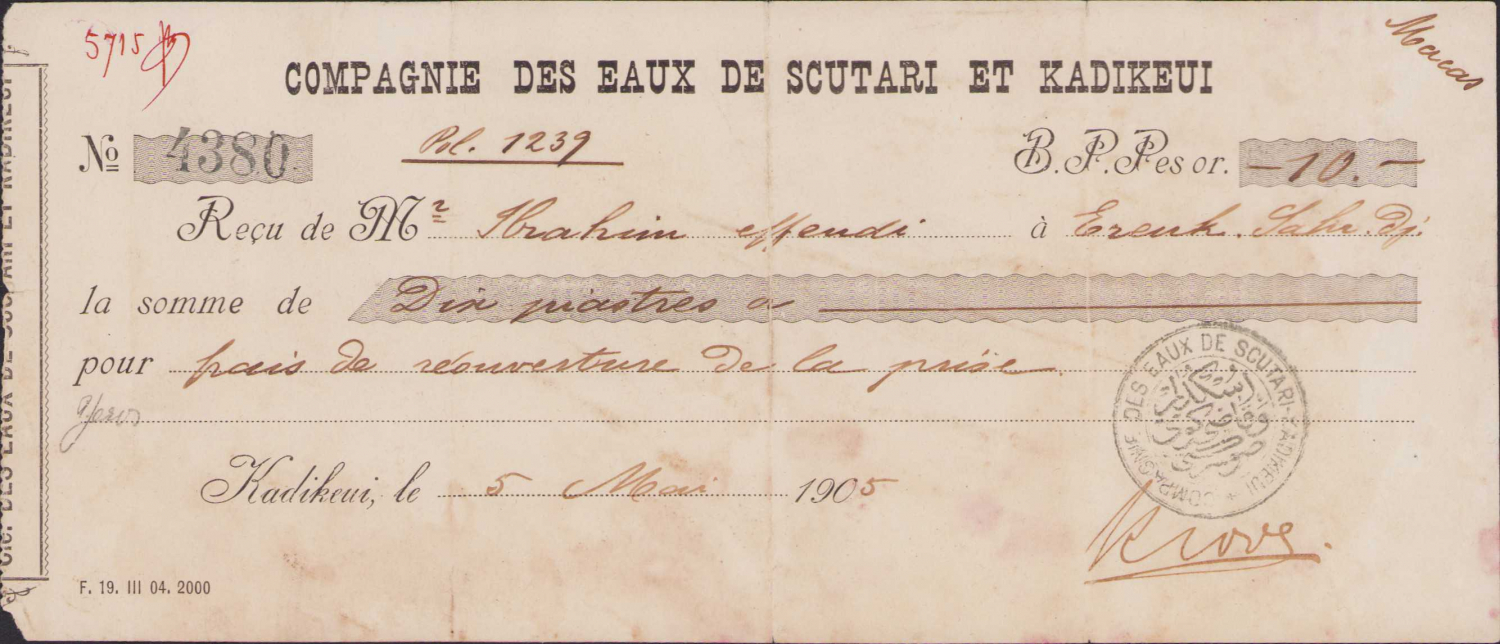 5715
Macas
COMPAGNIE DES EAUX DE SCUTARI ET KADIKEUI
No 4380 Pol. 1239 B.P. Pes or. -10.-
Reçu de Mr Ibrahim effendi à Erenk. Sahr. Dj.
la somme de Dix piastres or
pour frais de réouverture de la prise
Kadikeui, le 5 Mai 1905
COMPAGNIE DES EAUX DE SCUTARI-KADIKEUI
F. 19. III 04. 2000
Cie. DES EAUX DE SCUTARI ET KADIKEUI